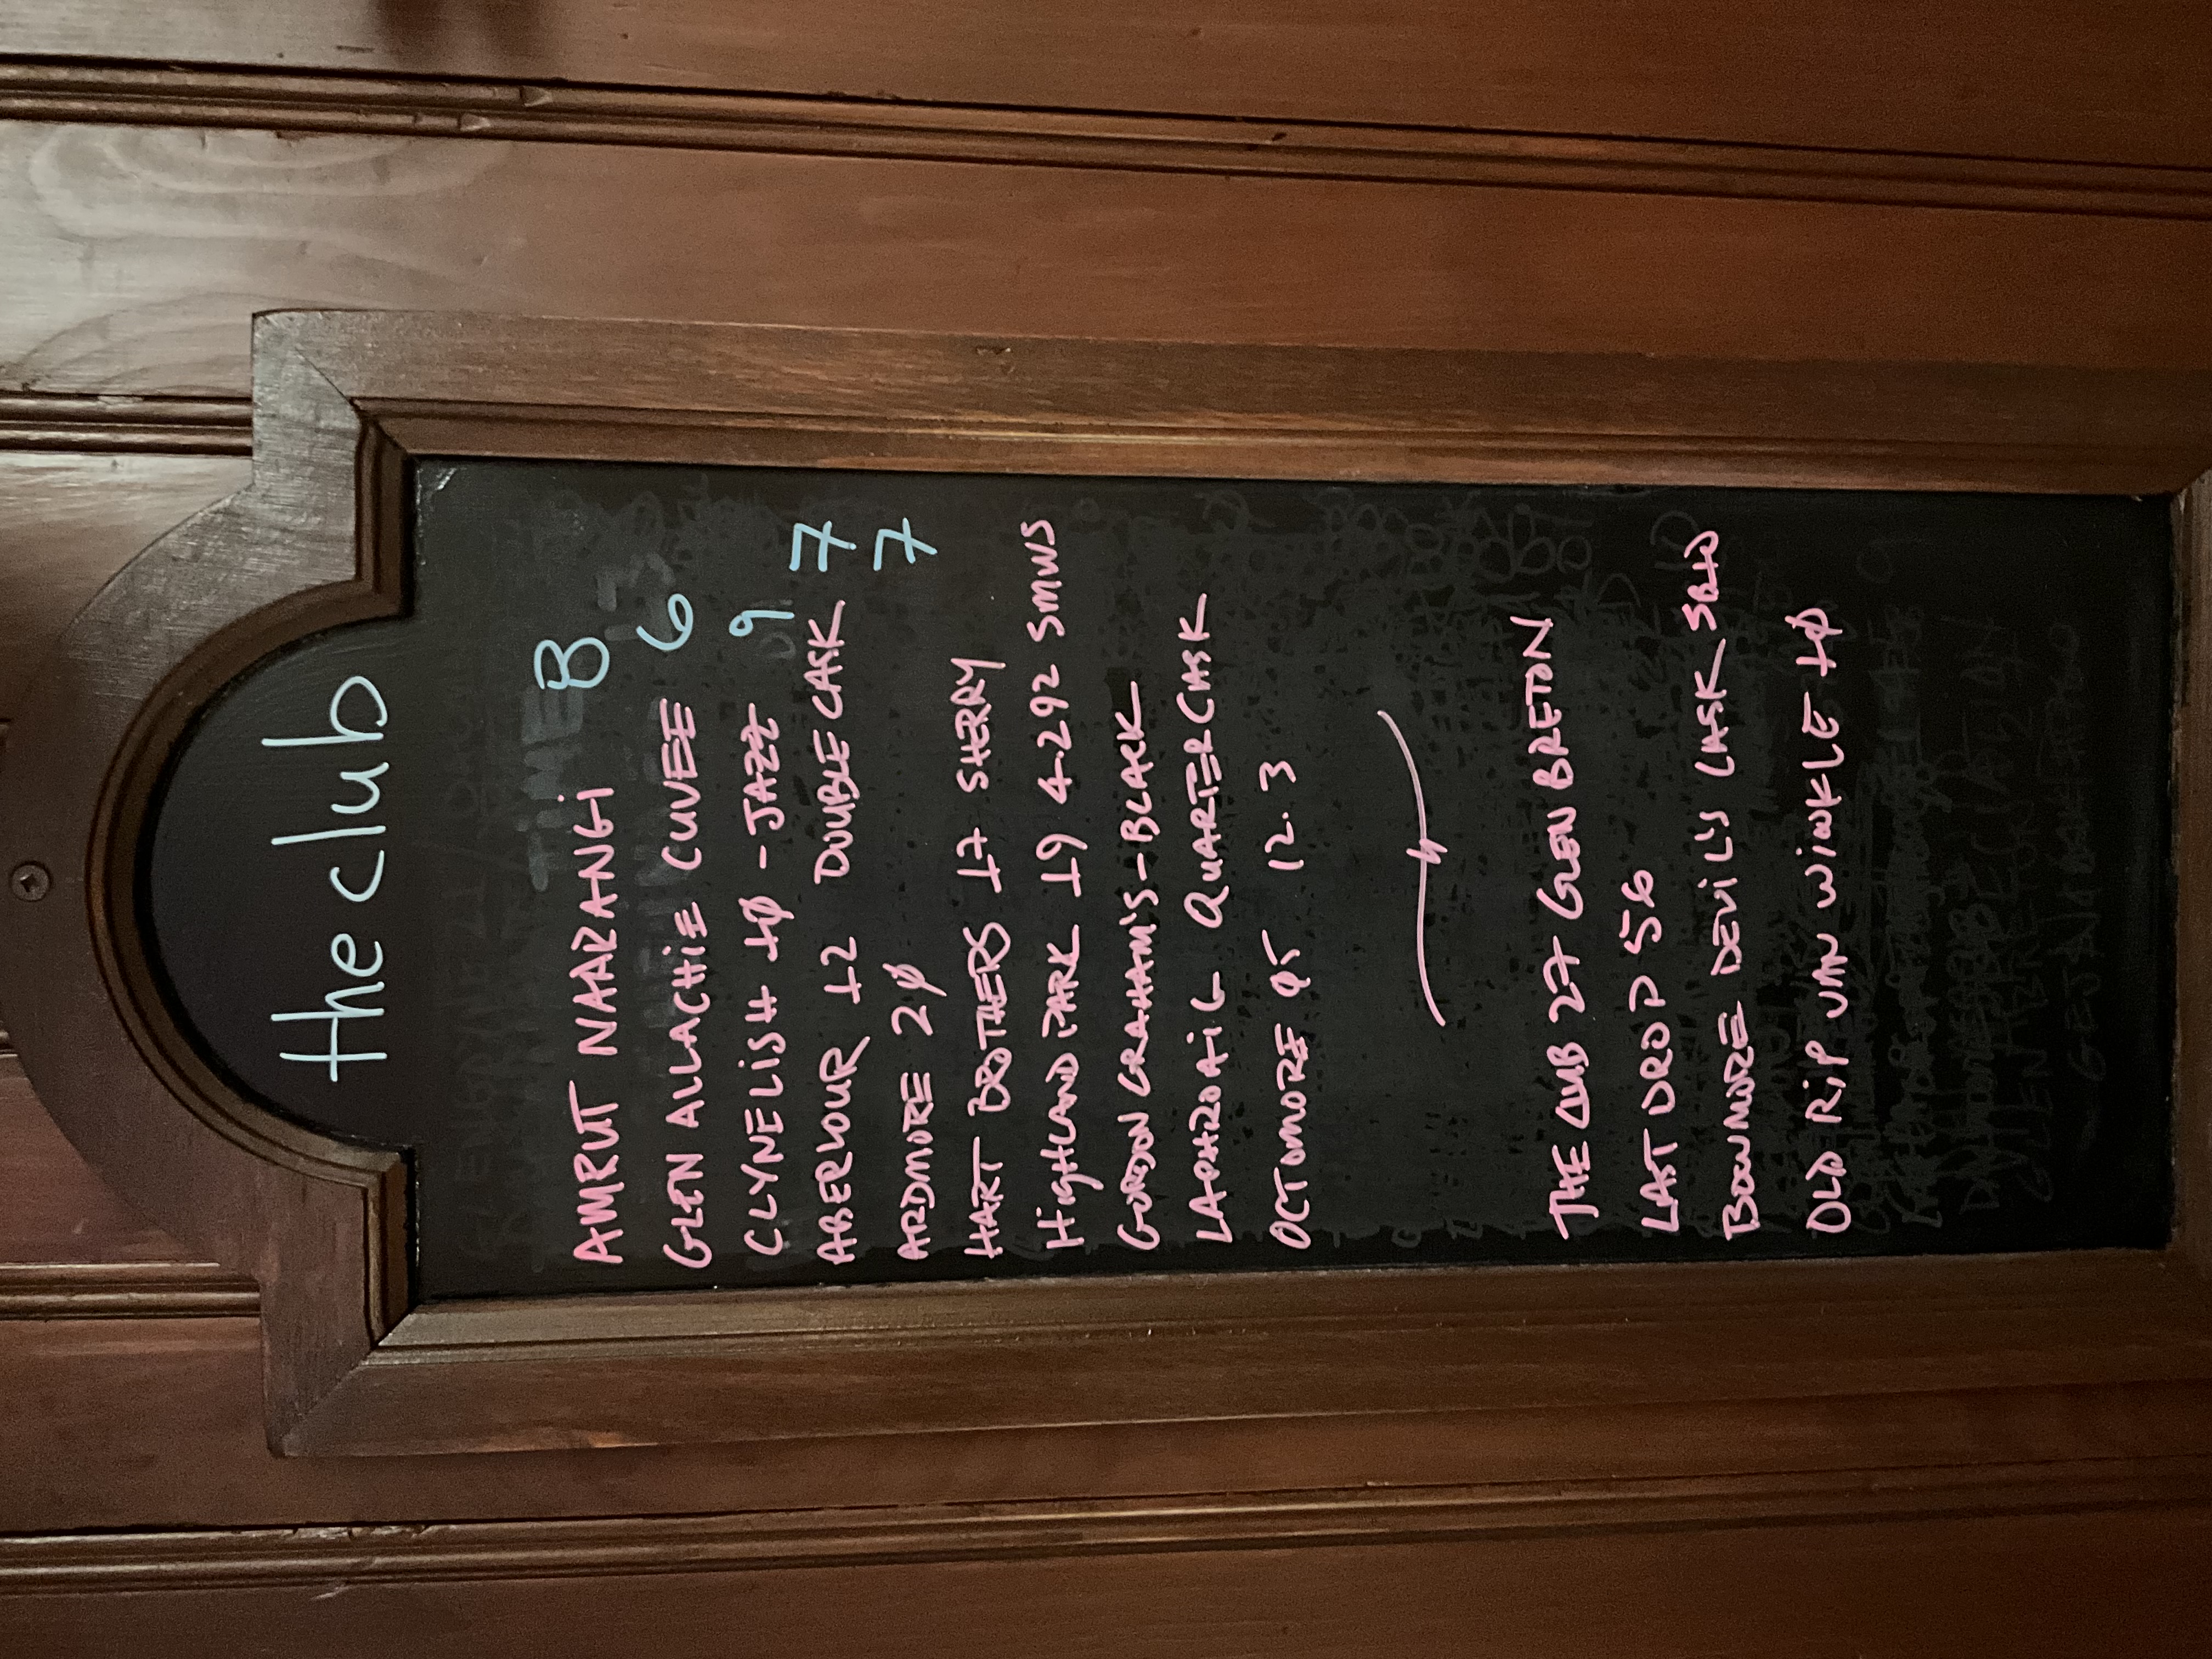 the club
AMRUT NAARANGI 8
GLEN ALLACHIE CUVEE 6
CLYNELISH 10 - JAZZ 9
ABERLOUR 12 DOUBLE CASK 7
ARDMORE 20 7
HART BROTHERS 17 SHERRY
HIGHLAND PARK 19 4.292 SMWS
GORDON GRAHAM'S - BLACK
LAPHROAIG QUARTER CASK
OCTOMORE 05 12.3
THE CLUB 27 GLEN BRETON
LAST DROP 56
BOWMORE DEVIL'S CASK
OLD RIP VAN WINKLE 10